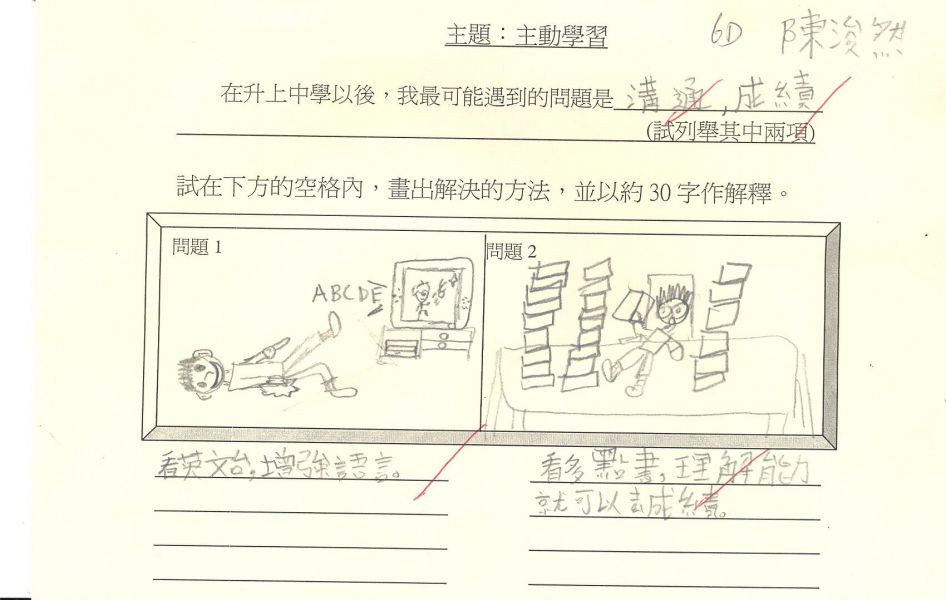 主題：主動學習
6D 陳浚然
在升上中學以後，我最可能遇到的問題是 溝通,成績
(試列舉其中兩項)
試在下方的空格內，畫出解決的方法，並以約 30 字作解釋。
問題 1
問題 2
ABCDE
看英文台,增強語言。
看多點書,理解能力
就可以 成績。